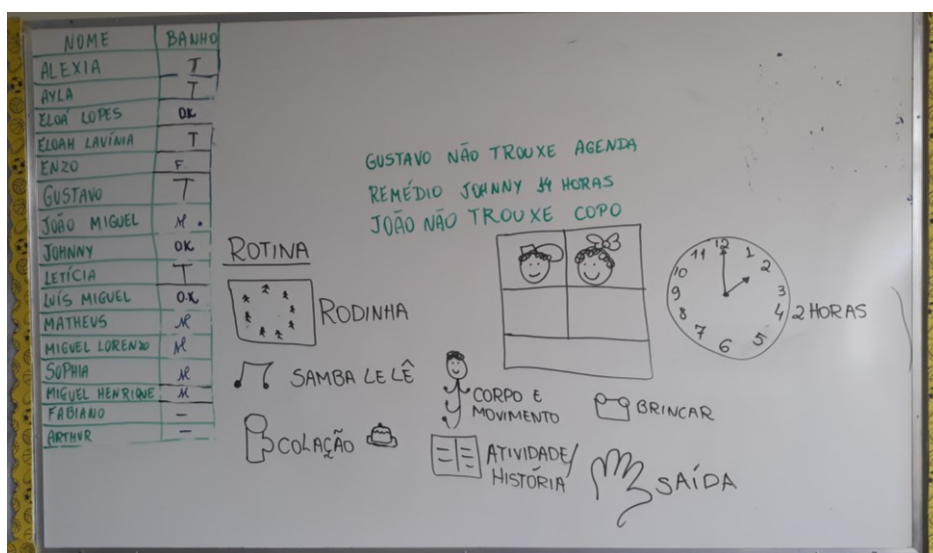 NOME BANHO
ALEXIA T
AYLA T
ELOÁ LOPES OK
ELOAH LAVÍNIA T
ENZO F
GUSTAVO T
JOÃO MIGUEL M.
JOHNNY OK
LETÍCIA T
LUÍS MIGUEL O.K
MATHEUS M
MIGUEL LORENZO M
SOPHIA M
MIGUEL HENRIQUE M
FABIANO –
ARTHUR –
GUSTAVO NÃO TROUXE AGENDA
REMÉDIO JOHNNY 14 HORAS
JOÃO NÃO TROUXE COPO
ROTINA
RODINHA
SAMBA LELÊ
COLAÇÃO
CORPO E
MOVIMENTO
BRINCAR
ATIVIDADE/
HISTÓRIA
SAÍDA
12 1 2 3 4 5 6 7 8 9 10 11
2 HORAS